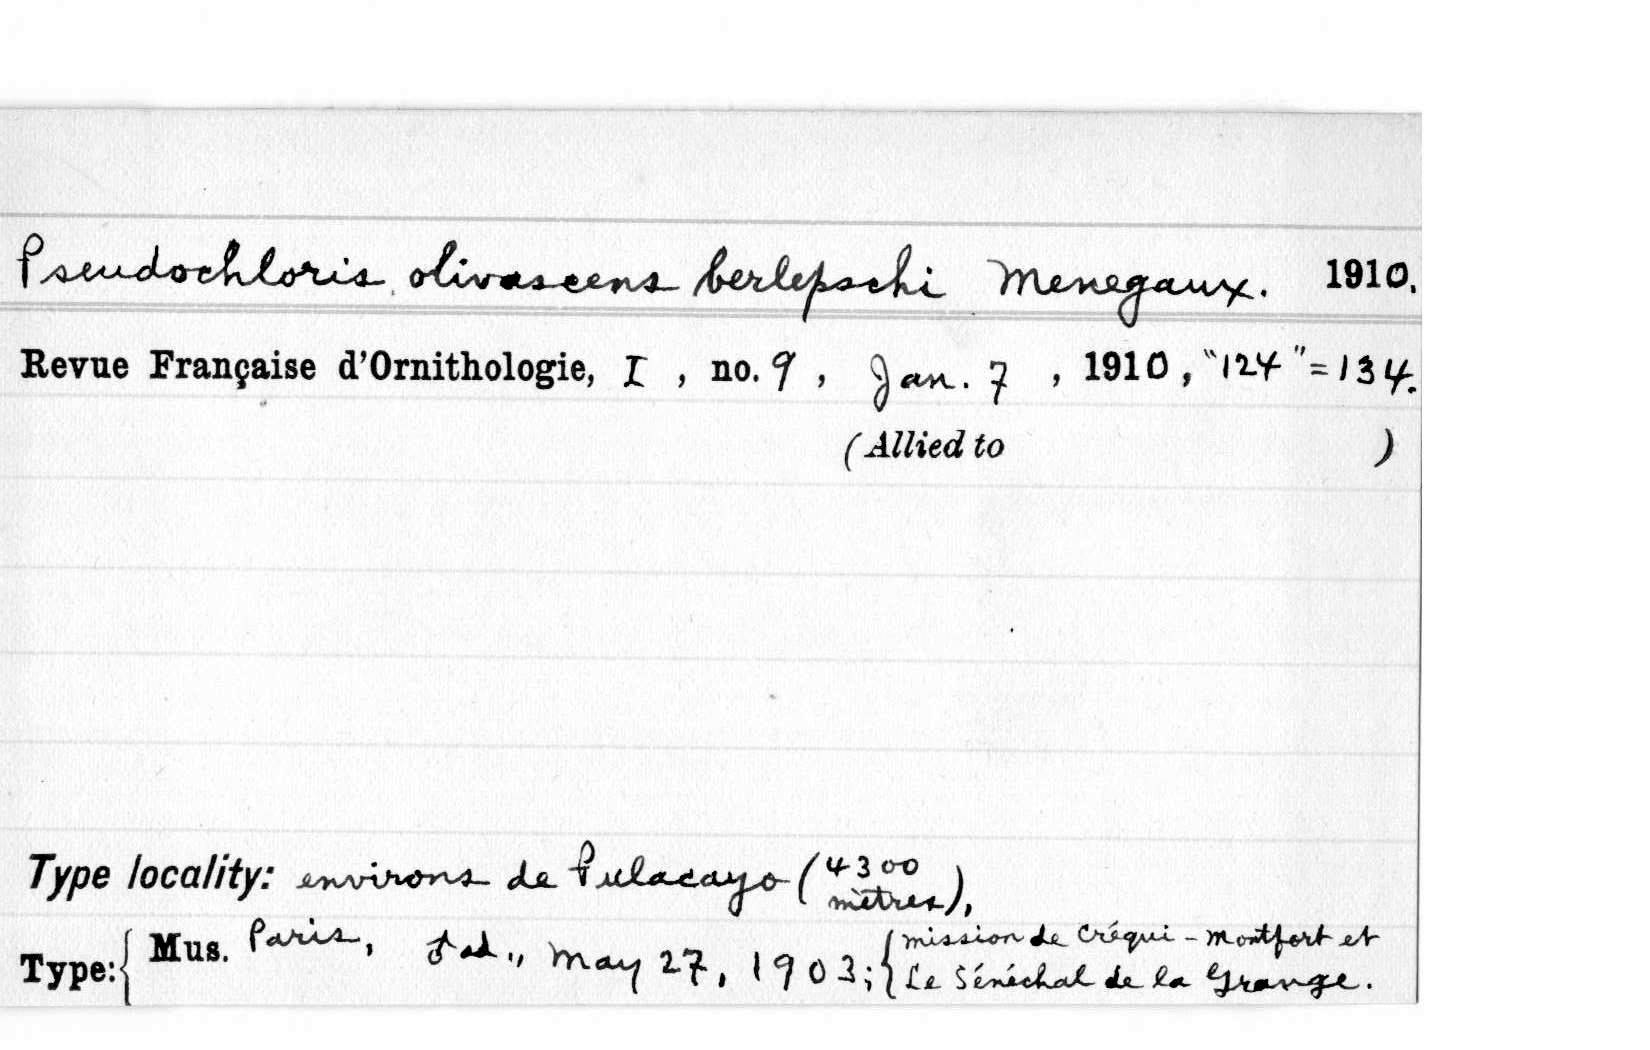 Pseudochloris olivascens berlepschi Menegaux. 1910.
Revue Française d'Ornithologie, I, no. 9, Jan. 7, 1910, "124" = 134.
(Allied to )
Type locality: environs de Pulacayo (4300 mètres),
Type: { Mus. Paris, ♂ ad., May 27, 1903; { mission de Créqui-Montfort et
Le Sénéchal de la Grange.